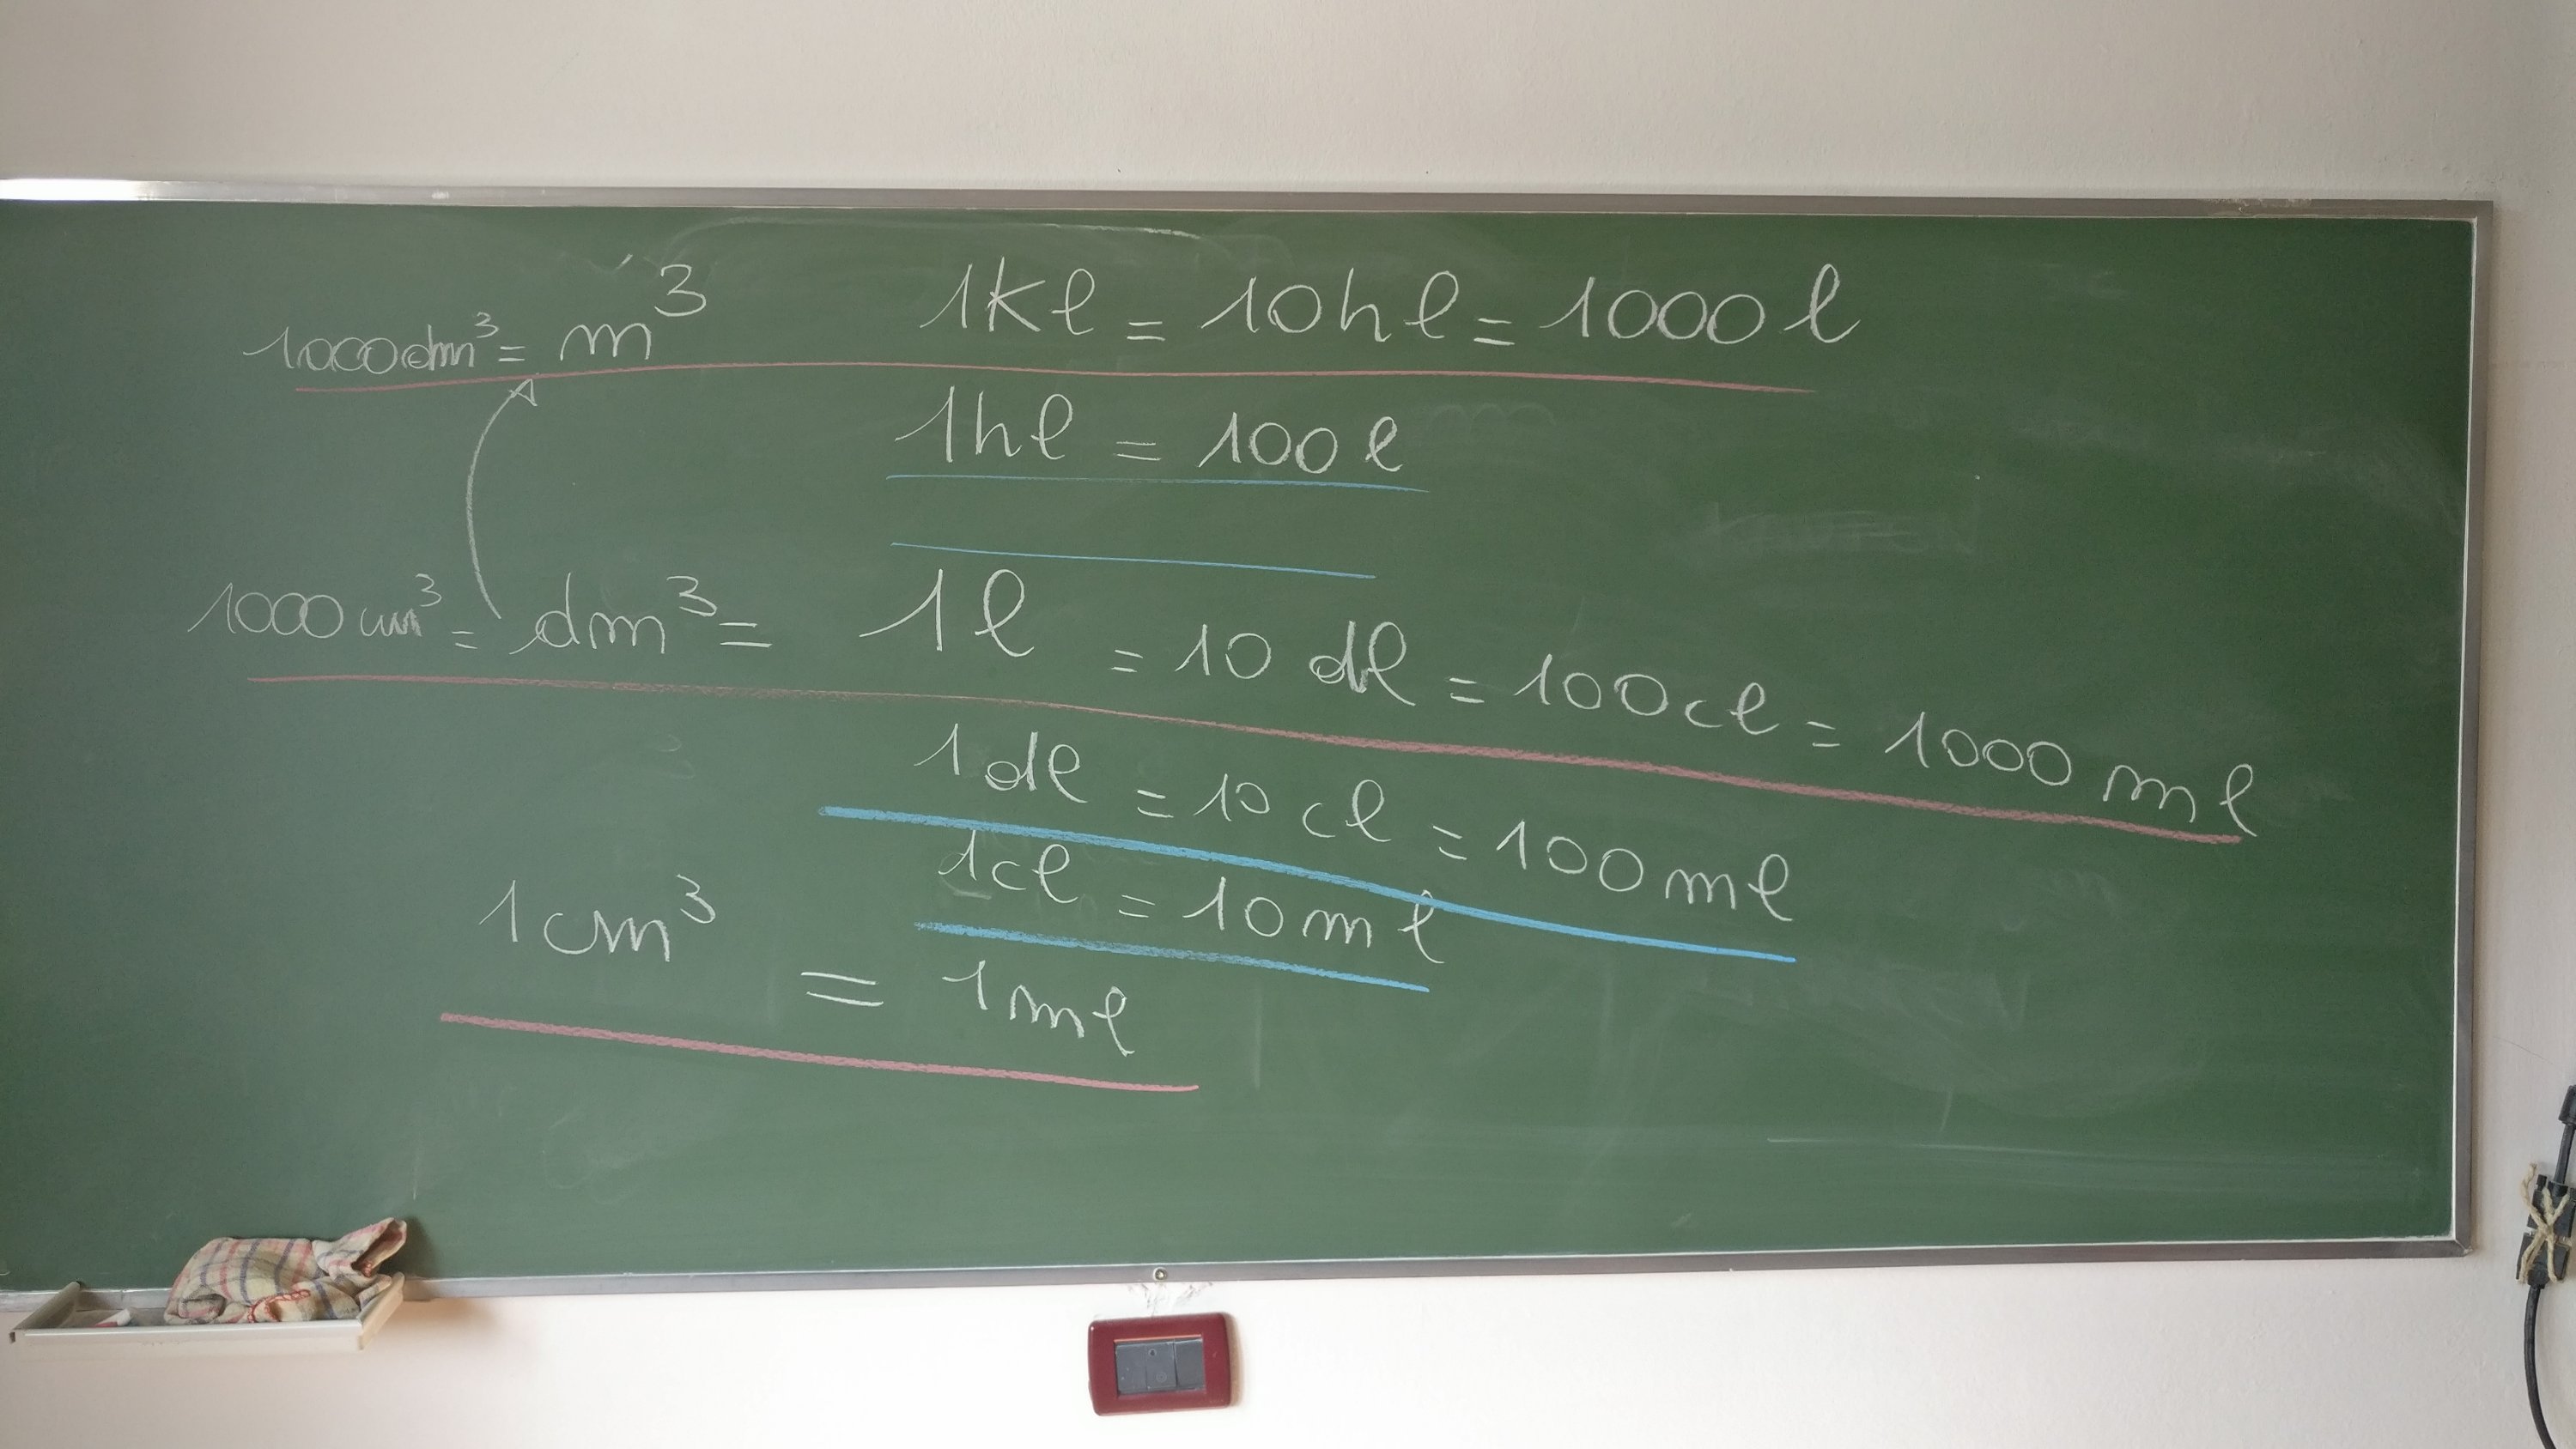 1000dm³ = m³ 1kl = 10hl = 1000 l
1hl = 100 l
1000 cm³ = dm³ = 1 l = 10 dl = 100cl = 1000 ml
1 dl = 10 cl = 100 ml
1cl = 10 ml
1 cm³ = 1 ml